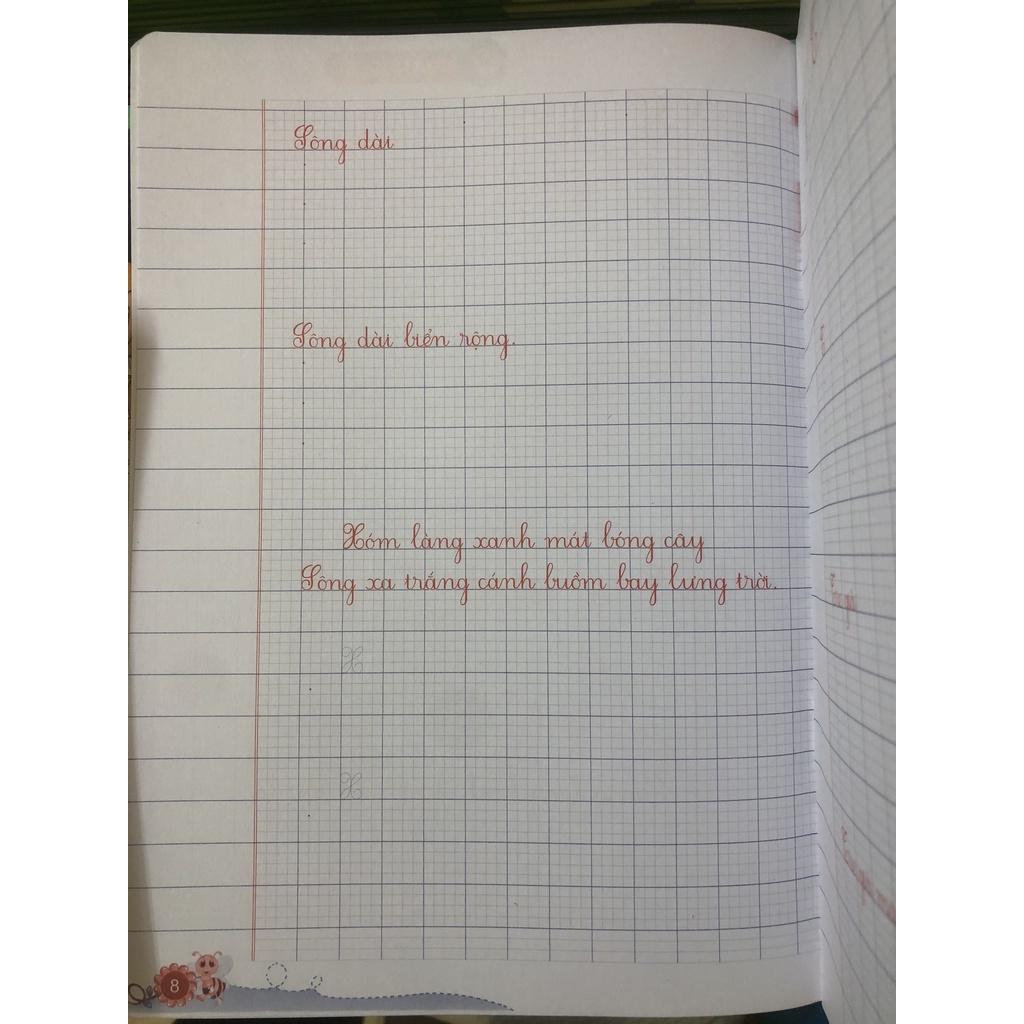 Sông dài
Sông dài biển rộng.
Xóm làng xanh mát bóng cây
Sông xa trắng cánh buồm bay lưng trời.
X
X
8